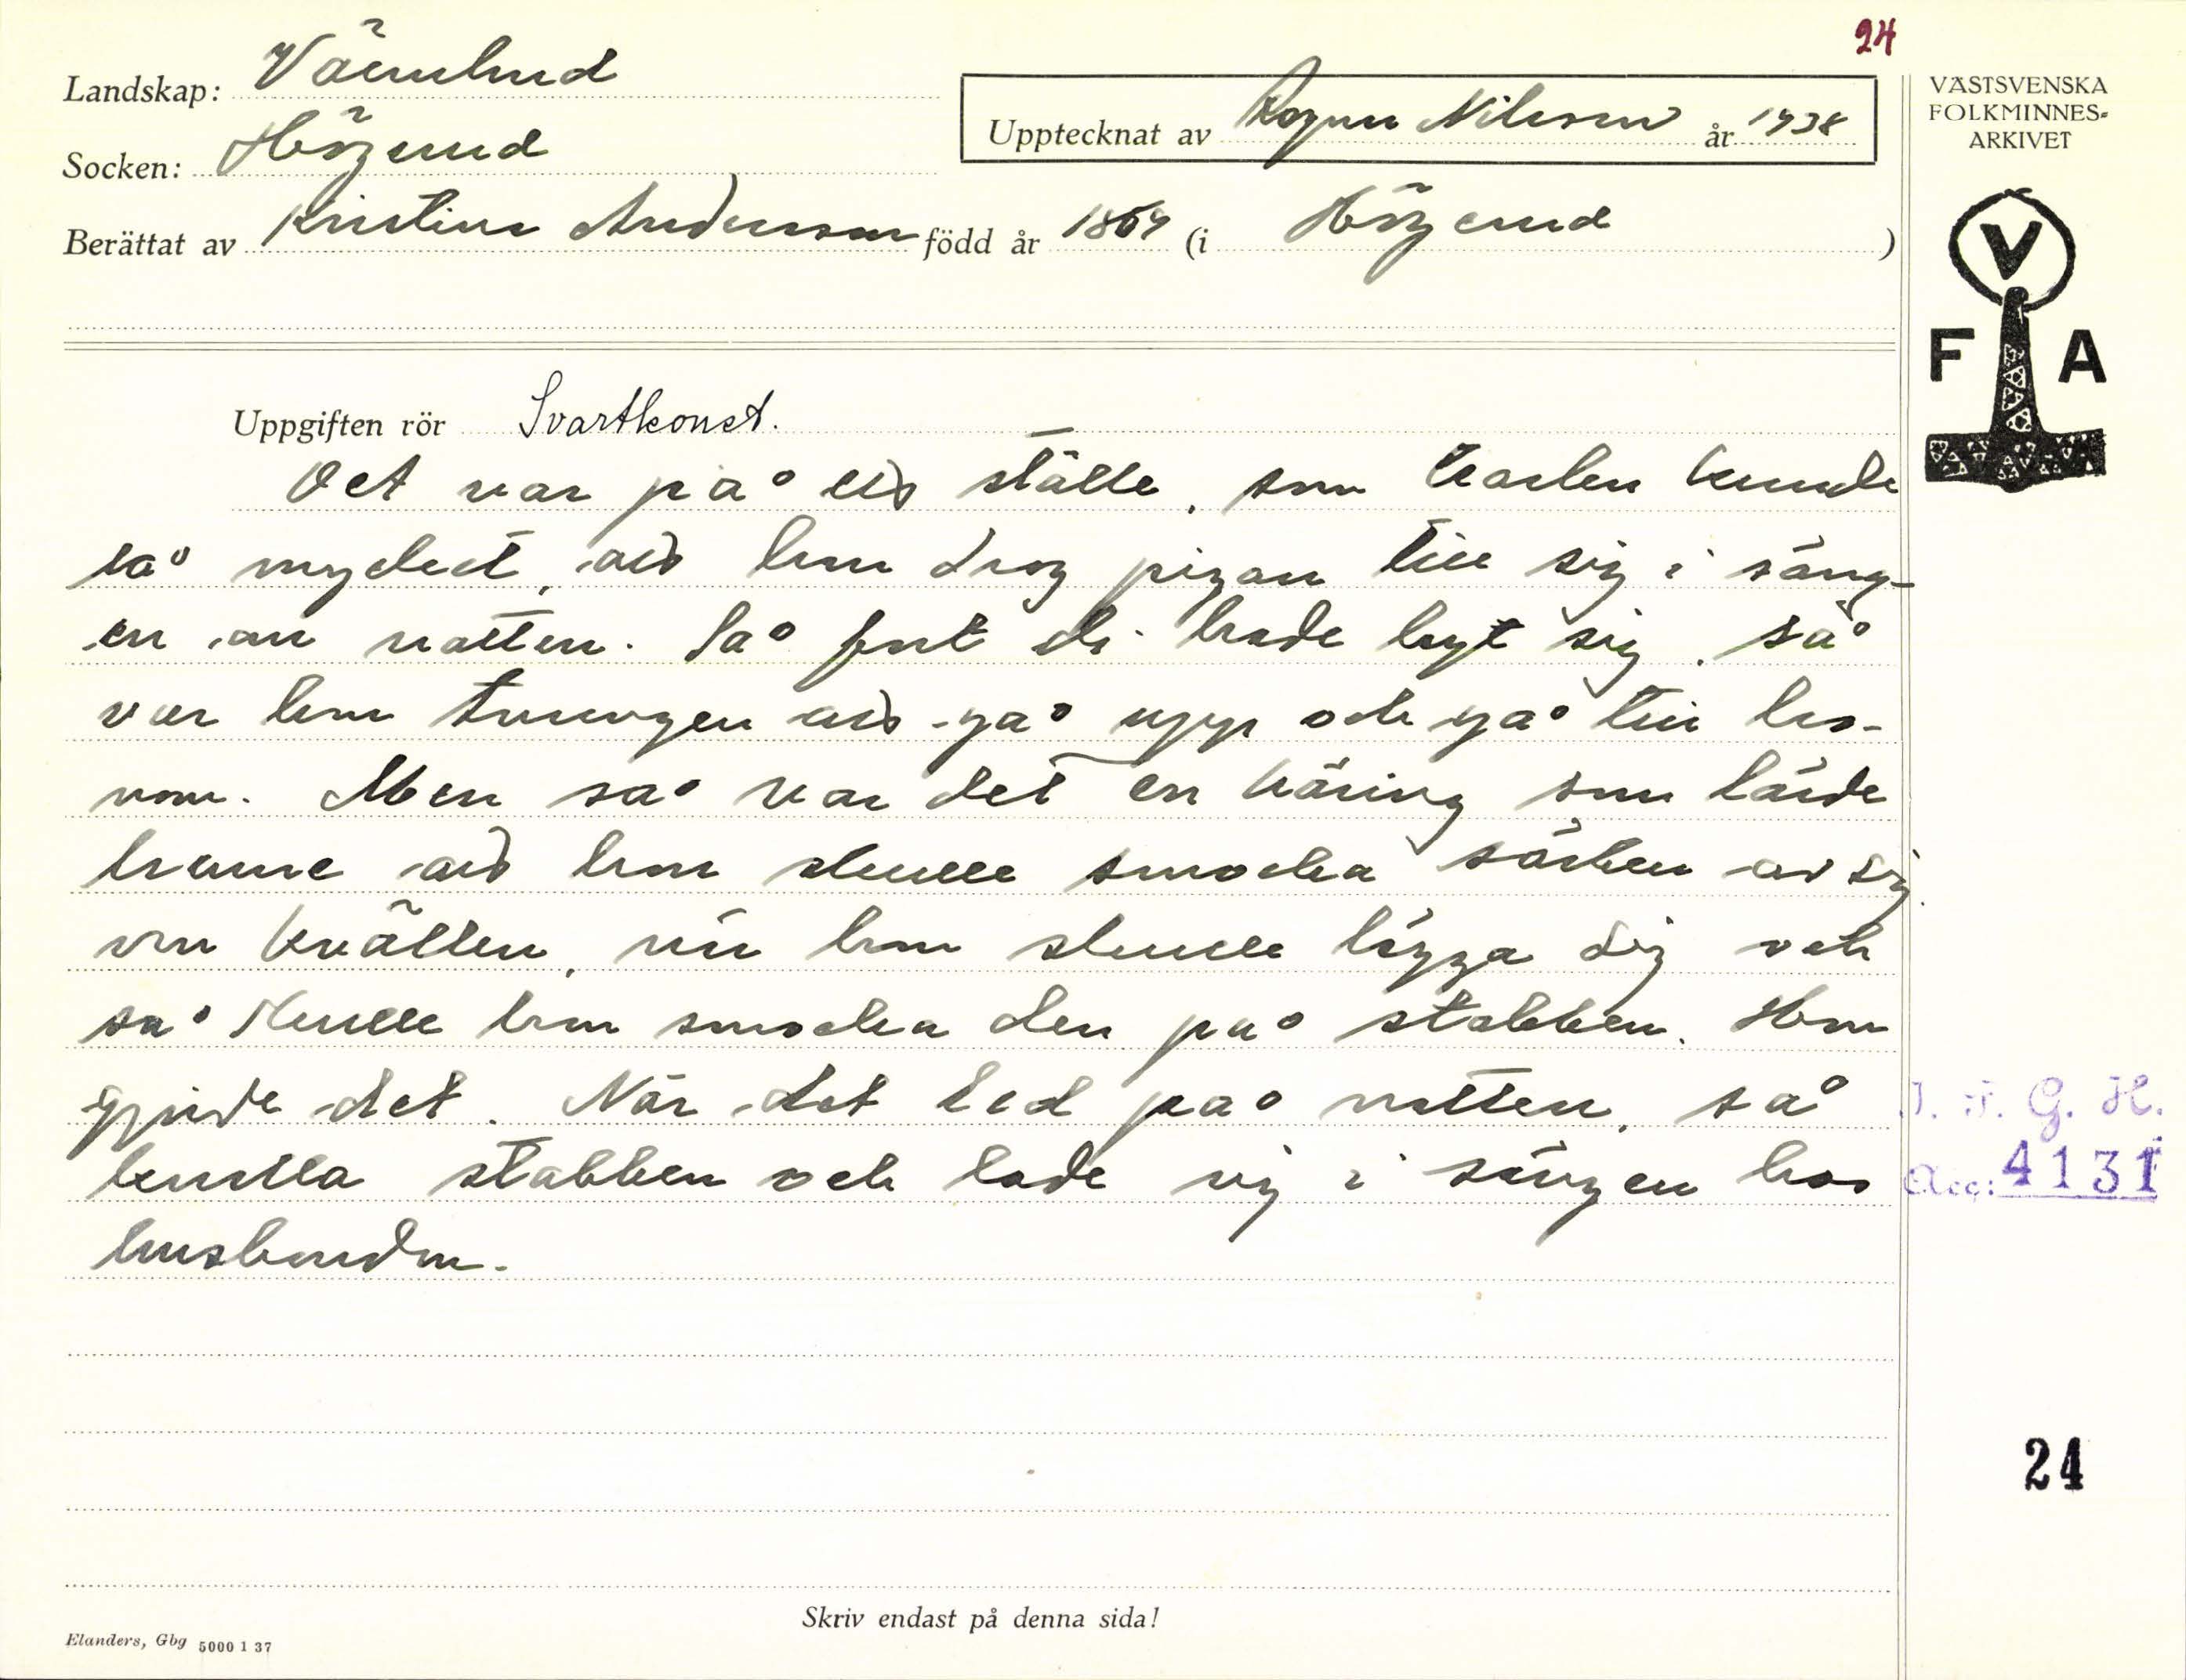 24
Landskap: Värmland
Upptecknat av Ragnar Nilsson år 1938
Socken: Högerud
Berättat av Kristina Andersson född år 1869 (i Högerud )
VÄSTSVENSKA
FOLKMINNES-
ARKIVET
V
F A
Uppgiften rör Svartkonst.
Det var på ett ställe, som karlen kunde
så mycket, att han drog pigan till sig i säng-
en om natten. Så fort de hade lagt sig, så
var hon tvungen att gå upp och gå till ho-
nom. Men så var det en käring som lärde
henne att hon skulle smocka särken av sig
om kvällen, när hon skulle lägga sig och
så skulle hon smocka den på stabben. Hon
gjorde det. När det led på natten, så
knalla stabben och lade sig i sängen hos
husbonden.
I. F. G. H.
Acc: 4131
24
Skriv endast på denna sida!
Elanders, Gbg 5000 1 37